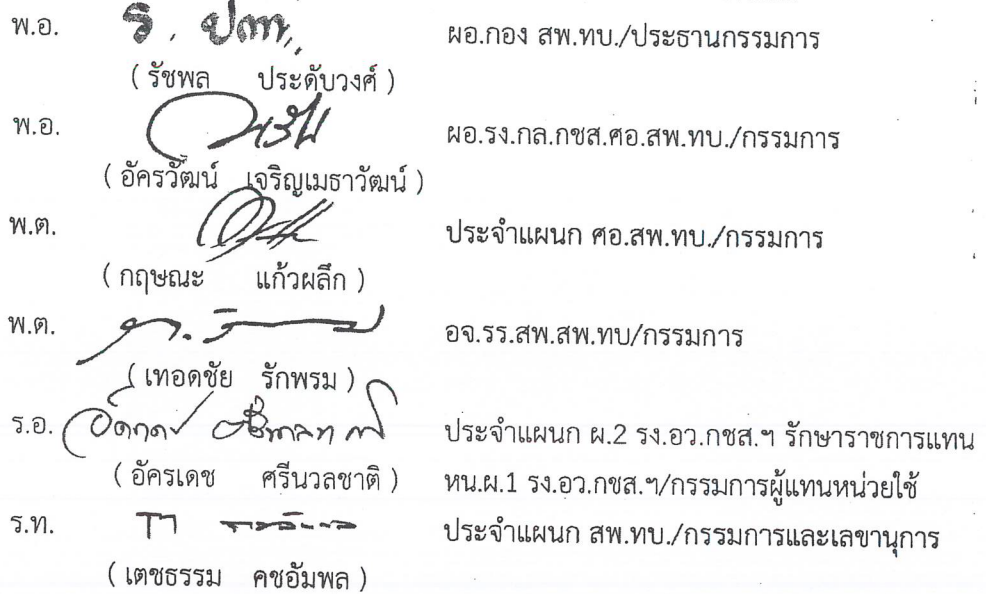 พ.อ. ผอ.กอง สพ.ทบ./ประธานกรรมการ
( รัชพล ประดับวงศ์ )
พ.อ. ผอ.รง.กล.กชส.ศอ.สพ.ทบ./กรรมการ
( อัครวัฒน์ เจริญเมธาวัฒน์ )
พ.ต. ประจำแผนก ศอ.สพ.ทบ./กรรมการ
( กฤษณะ แก้วผลึก )
พ.ต. อจ.รร.สพ.สพ.ทบ/กรรมการ
( เทอดชัย รักพรม )
ร.อ. ประจำแผนก ผ.2 รง.อว.กชส.ฯ รักษาราชการแทน
( อัครเดช ศรีนวลชาติ ) หน.ผ.1 รง.อว.กชส.ฯ/กรรมการผู้แทนหน่วยใช้
ร.ท. ประจำแผนก สพ.ทบ./กรรมการและเลขานุการ
( เตชธรรม คชอัมพล )